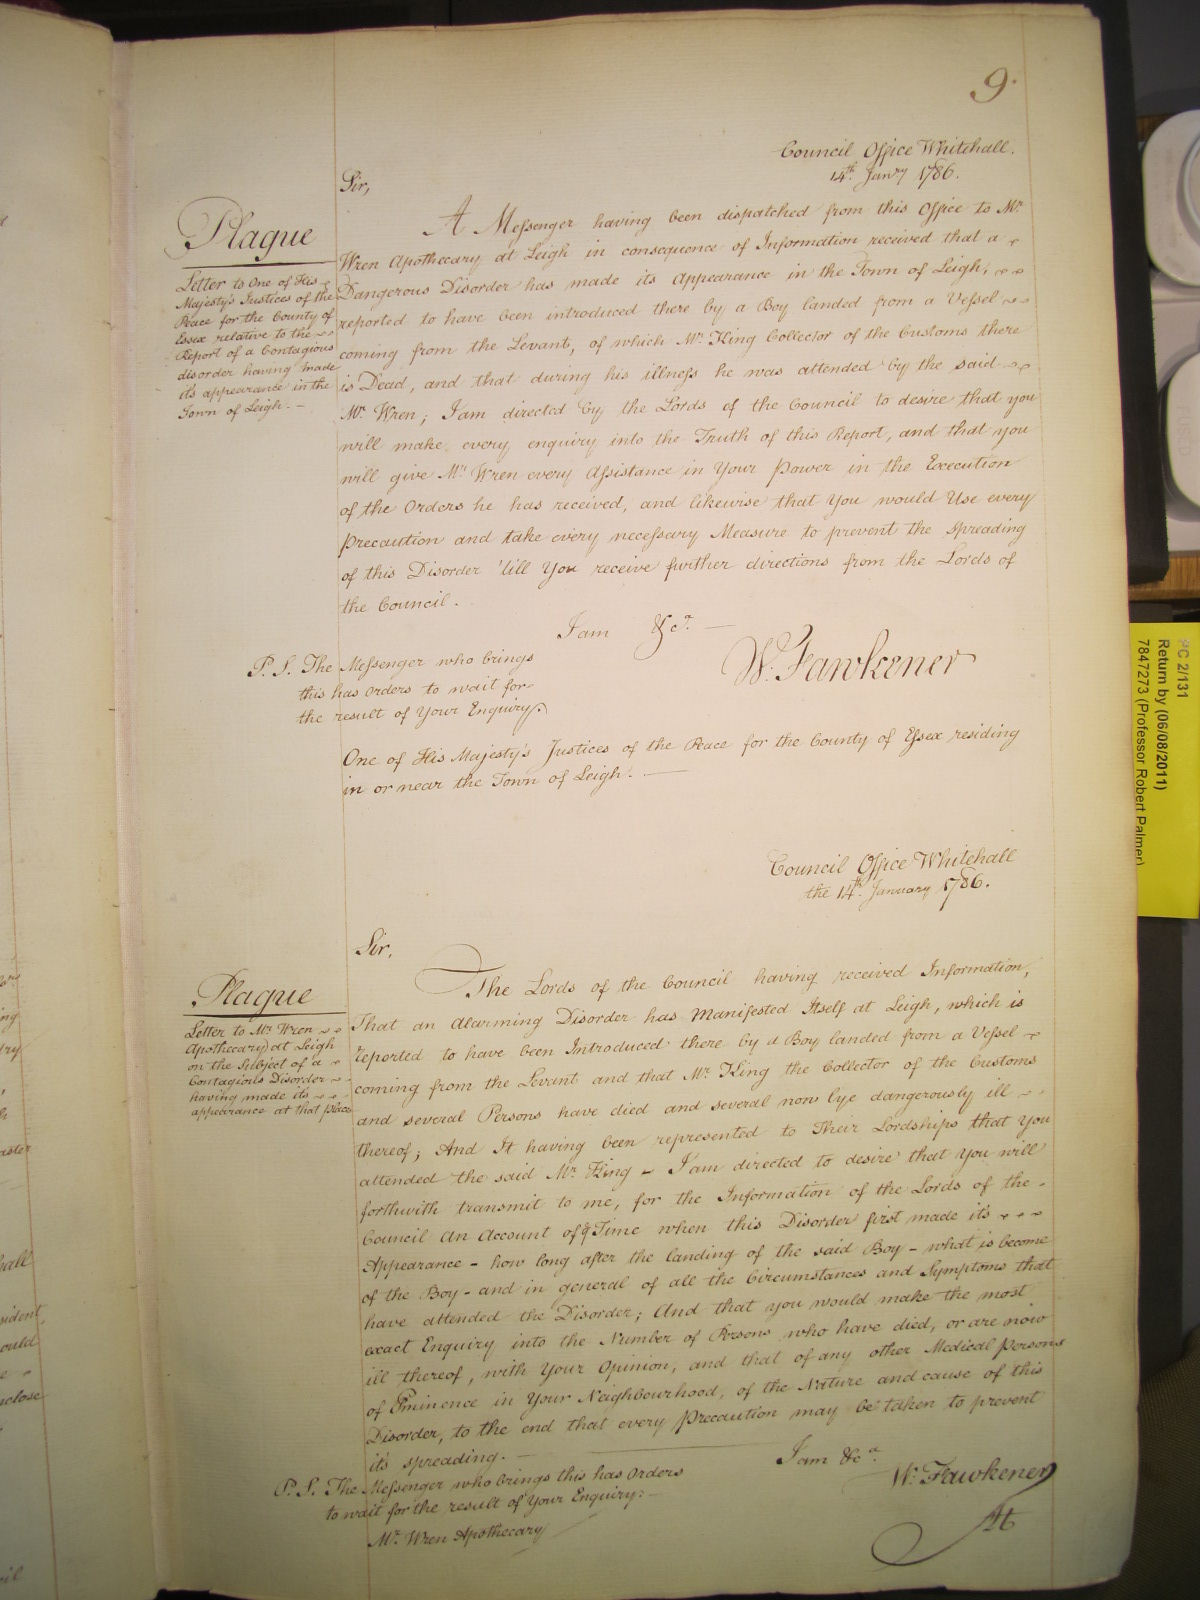 9.
Council Office Whitehall.
14th. Janry 1786.
Sir,
Plague
Letter to One of His
Majesty's Justices of the
Peace for the County of
Essex relative to the
Report of a Contagious
disorder having made
its appearance in the
Town of Leigh. -
A Messenger having been dispatched from this Office to Mr.
Wren Apothecary at Leigh in consequence of Information received that a
Dangerous Disorder has made its Appearance in the Town of Leigh,
reported to have been introduced there by a Boy landed from a Vessel
coming from the Levant, of which Mr. King Collector of the Customs there
is Dead, and that during his illness he was attended by the said
Mr. Wren; I am directed by the Lords of the Council to desire that you
will make every enquiry into the Truth of this Report, and that you
will give Mr. Wren every Assistance in Your Power in the Execution
of the Orders he has received, and likewise that You would Use every
Precaution and take every necessary Measure to prevent the spreading
of this Disorder 'till You receive further directions from the Lords of
the Council.
I am &ca. —
W. Fawkener
P. S. The Messenger who brings
this has orders to wait for
the result of Your Enquiry.
One of His Majesty's Justices of the Peace for the County of Essex residing
in or near the Town of Leigh. —
Council Office Whitehall
the 14th. January 1786.
Sir,
Plague
Letter to Mr. Wren
Apothecary at Leigh
on the Subject of a
Contagious Disorder
having made its
appearance at that place
The Lords of the Council having received Information,
That an alarming Disorder has Manifested Itself at Leigh, which is
reported to have been Introduced there by a Boy landed from a Vessel
coming from the Levant and that Mr. King the Collector of the Customs
and several Persons have died and several now lye dangerously ill
thereof; And It having been represented to Their Lordships that You
attended the said Mr. King - I am directed to desire that You will
forthwith transmit to me, for the Information of the Lords of the
Council an Account of ye Time when this Disorder first made it's
Appearance - how long after the landing of the said Boy - what is become
of the Boy - and in general of all the Circumstances and Symptoms that
have attended the Disorder; And that you would make the most
exact Enquiry into the Number of Persons who have died, or are now
ill thereof, with Your Opinion, and that of any other Medical Persons
of Eminence in Your Neighbourhood, of the Nature and cause of this
Disorder, to the end that every Precaution may be taken to prevent
it's spreading. —
I am &ca.
W. Fawkener
P. S. The Messenger who brings this has Orders
to wait for the result of Your Enquiry: -
Mr. Wren Apothecary
At
PC 2/131
Return by (06/08/2011)
7847273 (Professor Robert Palmer)